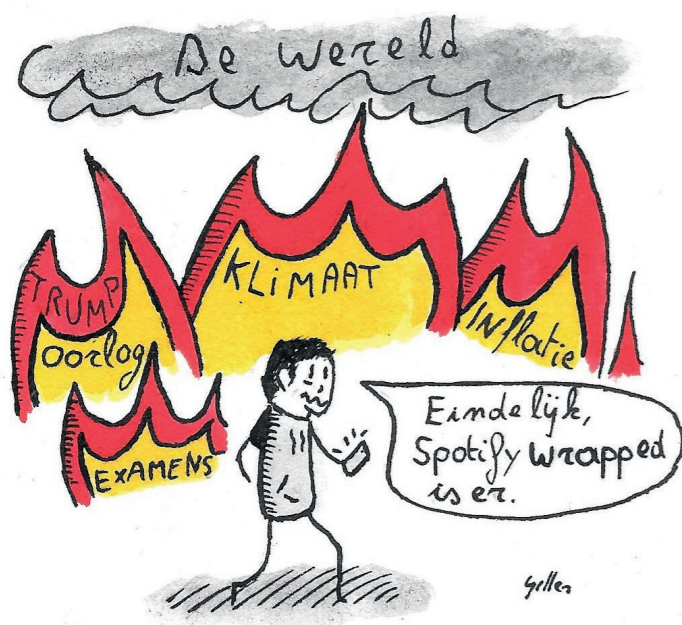 De wereld
TRUMP
oorlog
KLIMAAT
INflatie
EXAMENS
Eindelijk,
Spotify wrapped
is er.